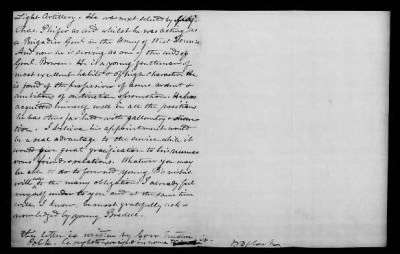 Light Artillery. He was next selected by
Chas. Phifer as aid whilst he was acting as
a Brigadier Genl in the Army of West Tennessee
And now he is serving as one of the aids of
Genl. Bowen. He is a young gentleman of
most excellent habits & of high character. He
is fond of the profession of arms ardent &
ambitious of distinction & promotion. He has
acquitted himself well in all the positions
he has thus far held with gallantry &
tion. I believe his appointment would
be a real advantage to the service while it
would give great gratification to his numer
ous friends & relations. Whatever you may
be able to do to forward young wishes
will to the many obligations I already feel
myself under to you and at the same time
will I know, be most gratefully ack
nowledged by young
This letter is written by Gov
Polk. he